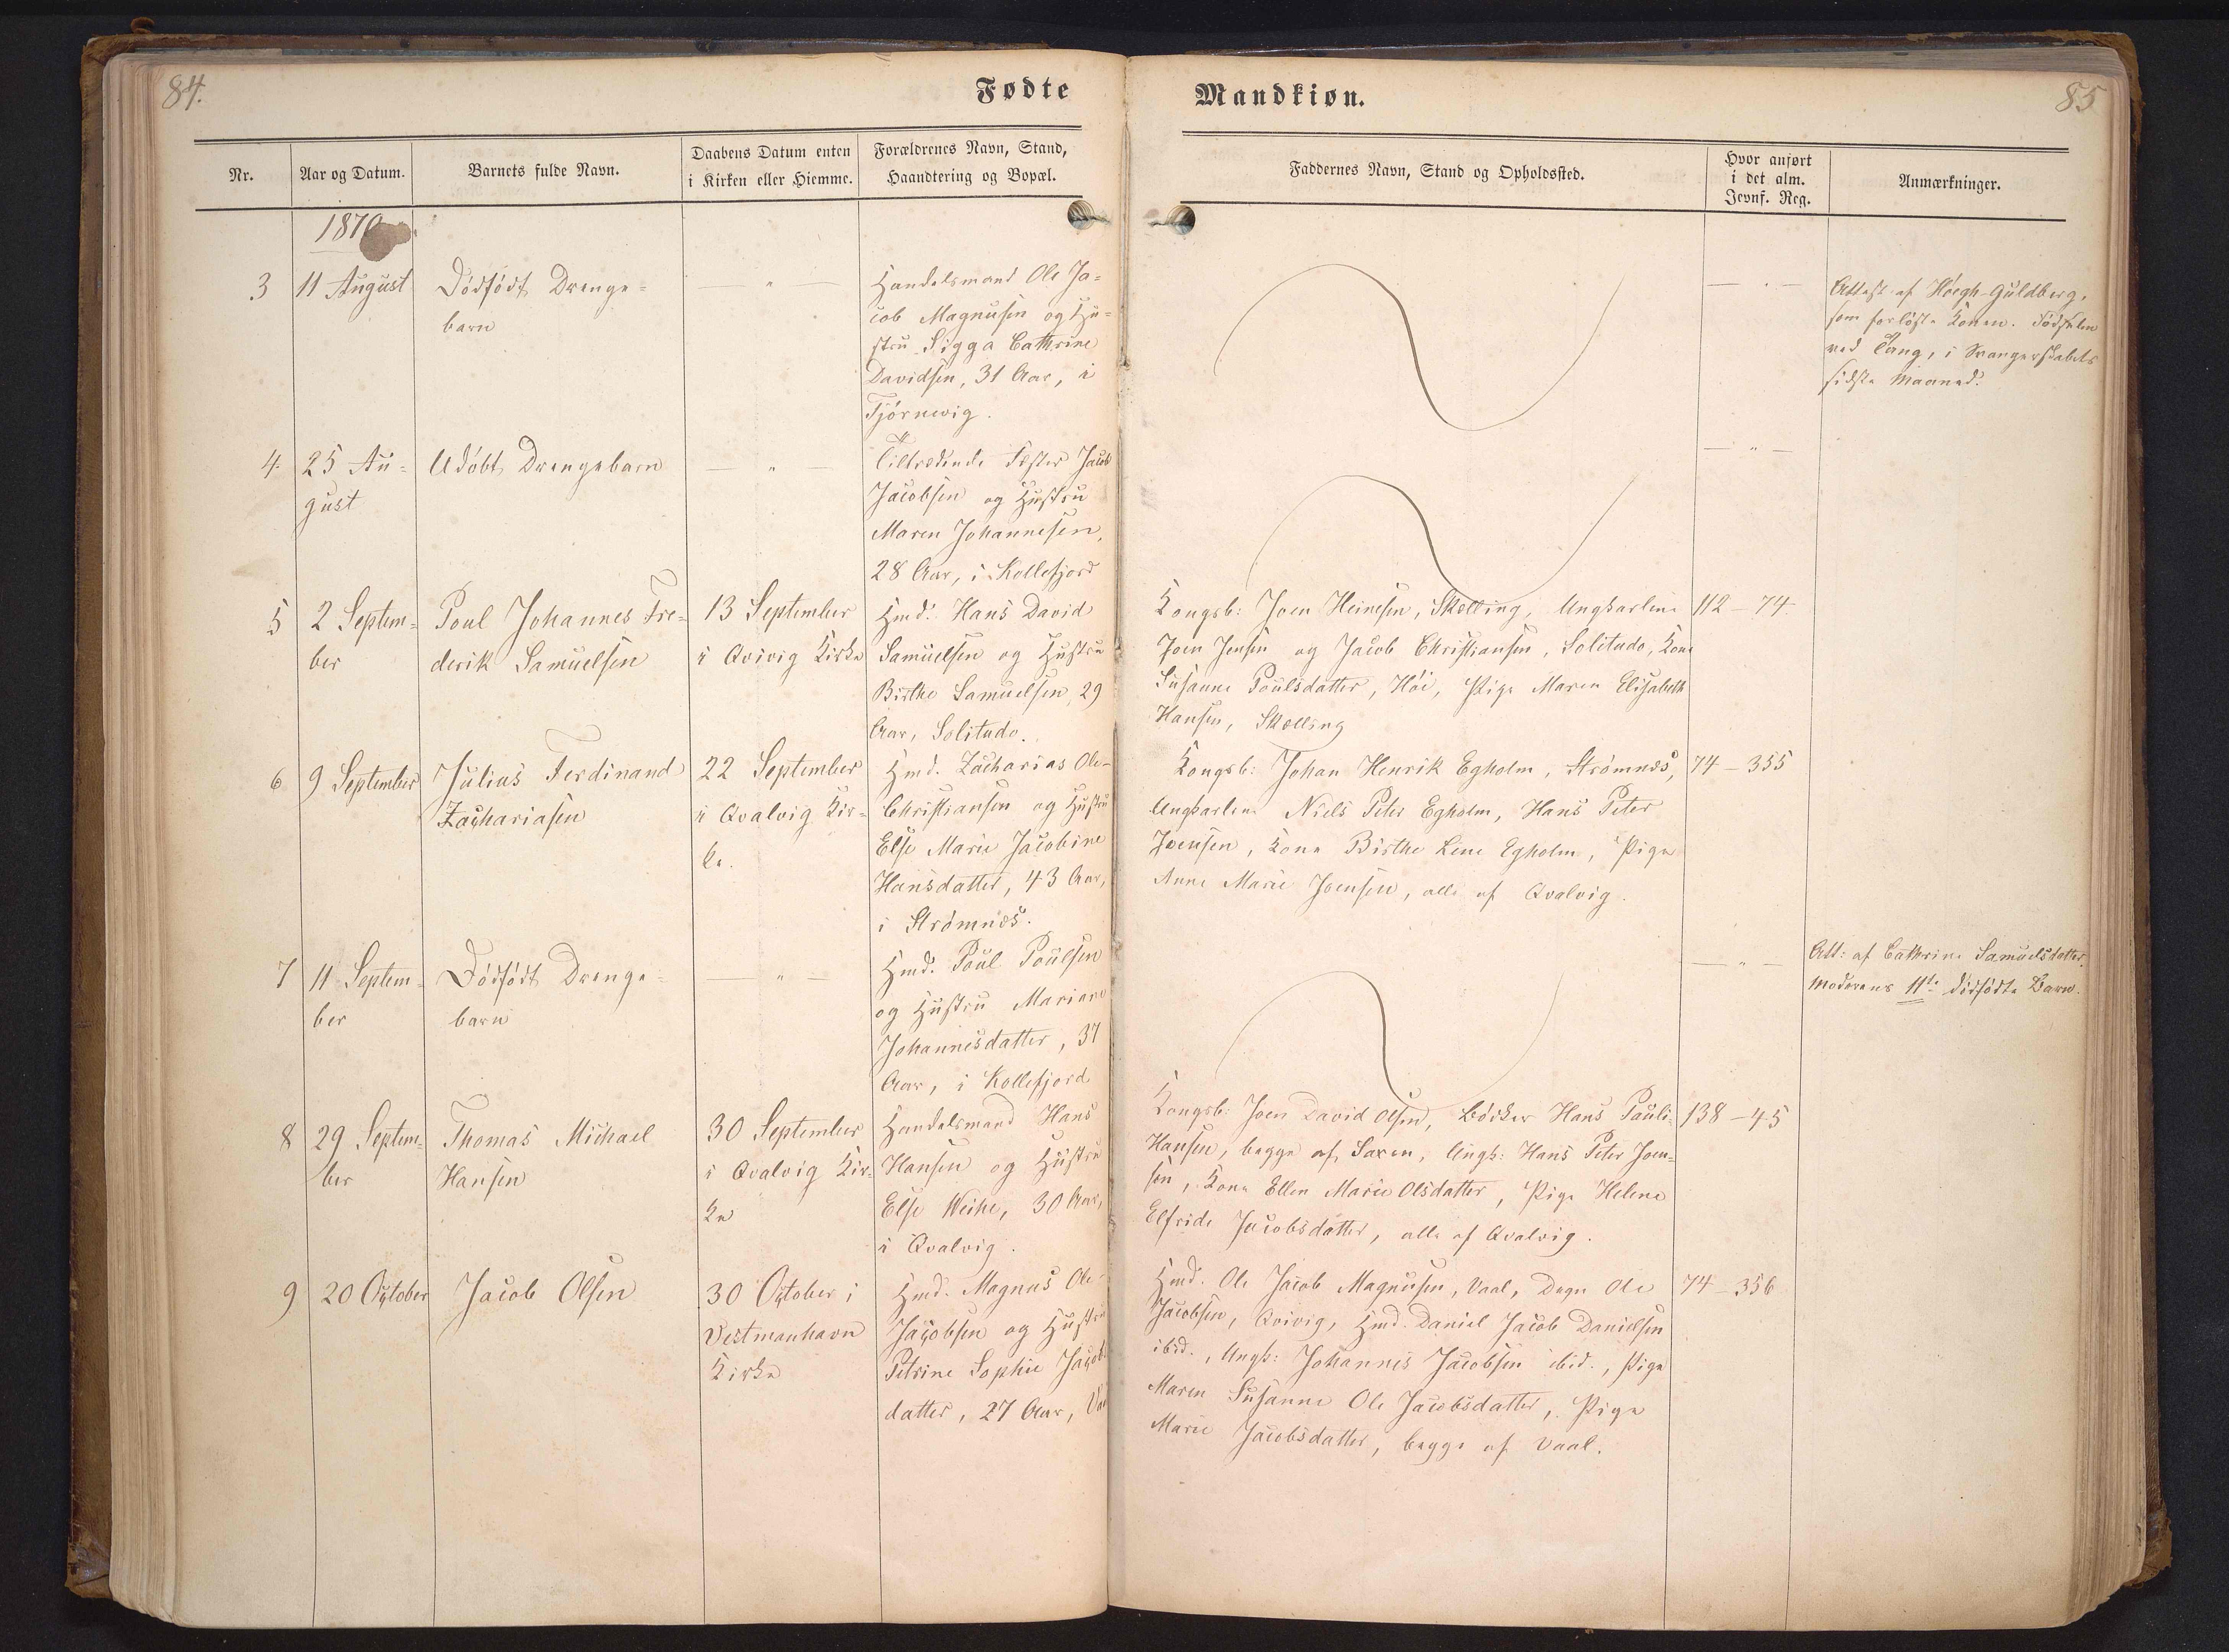 84.
Fødte
Nr.
Aar og Datum.
Barnets fulde Navn.
Daabens Datum enten
i Kirken eller Hiemme.
Forældrenes Navn, Stand,
Haandtering og Bopæl.
1870
3
11 August
Dödfödt Drenge=
barn
— " —
Handelsmand Ole Ja=
cob Magnusen og Hu=
stru Sigga Cathrine
Davidsen, 31 Aar, i
Tjörnevig.
4.
25 Au=
gust
Udöbt Drengebarn
— " —
Tiltrædende Fæster Jacob
Jacobsen og Hustru
Maren Johannesen,
28 Aar, i Kollefjord
5
2 Septem=
ber
Poul Johannes Fre=
derik Samuelsen
13 September
i Qvivig Kirke
Hmd. Hans David
Samuelsen og Hustru
Birthe Samuelsen, 29
Aar, Solitudo.
6
9 September
Julius Ferdinand
Zachariasen
22 September
i Qvalvig Kir=
ke.
Hmd. Zacharias Ole=
Christiansen og Hustru
Else Marie Jacobine
Hansdatter, 43 Aar,
i Strömnæs.
7
11 Septem=
ber
Dödfödt Drenge=
barn
— " —
Hmd. Poul Poulsen
og Hustru Mariane
Johannesdatter, 37
Aar, i Kollefjord
8
29 Septem=
ber
Thomas Michael
Hansen
30 September
i Qvalvig Kir=
ke
Handelsmand Hans
Hansen og Hustru
Else Weihe, 30 Aar,
i Qvalvig.
9
20 October
Jacob Olsen
30 October i
Vestmanhavn
Kirke
Hmd. Magnus Ole=
Jacobsen og Hustru
Petrine Sophie Jacobs
datter, 27 Aar,
Mandkiøn.
85
Faddernes Navn, Stand og Opholdssted.
Hvor anført
i det alm.
Jevnf. Reg.
Anmærkninger.
— " —
Attest af Höegh-Guldberg,
som forlöste Konen. Födselen
ved Tang, i Svangerskabets
sidste Maaned.
— " —
Kongsb: Joen Heinesen, Skælling, Ungkarlene
Joen Jensen og Jacob Christiansen, Solitudo, Kone
Susanne Poulsdatter, Höi, Pige Maren Elisabeth
Hansen, Skælling
112 — 74
Kongsb: Johan Henrik Egholm, Strömnæs,
Ungkarlene Niels Peter Egholm, Hans Peter
Joensen, Kone Birthe Line Egholm, Pige
Anne Marie Joensen, alle af Qvalvig.
74 — 355
— " —
Att: af Cathrine Samuelsdatter.
Moderens 11te dödfödte Barn.
Kongsb: Joen David Olsen, Bödker Hans Pauli=
Hansen, begge af Saxen, Ungk: Hans Peter Joen=
sen, Kone Ellen Marie Olsdatter, Pige Helene
Elfride Jacobsdatter, alle af Qvalvig.
138 — 45
Hmd. Ole Jacob Magnusen, Vaal, Degn Ole
Jacobsen, Qvivig, Hmd. Daniel Jacob Danielsen
ibid., Ungk: Johannes Jacobsen ibid., Pige
Maren Susanne Ole Jacobsdatter, Pige
Marie Jacobsdatter, begge af Vaal.
74 — 356